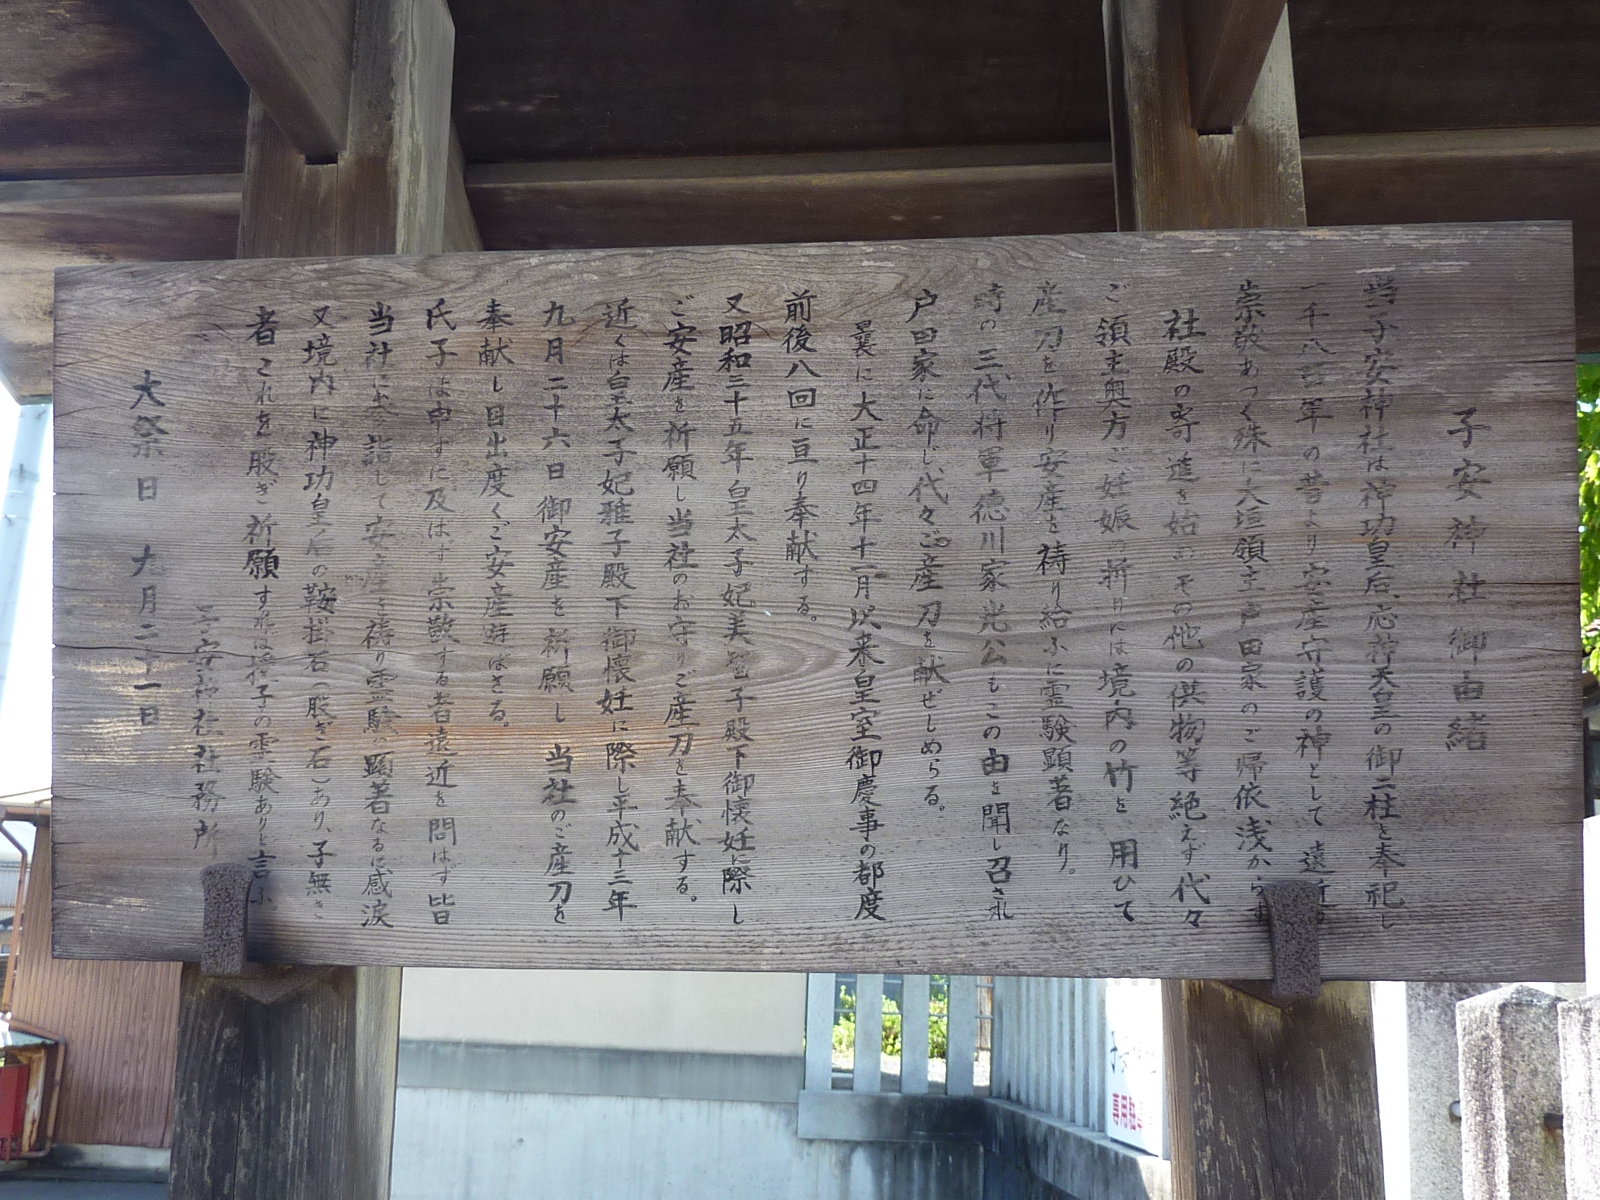 子安神社御由緒
当子安神社は神功皇后、応神天皇の御二柱を奉祀し
一千八百年の昔より安産守護の神として遠近
崇敬あつく殊に大垣領主戸田家のご帰依浅からず
社殿の寄進を始めその他の供物等絶えず代々
ご領主奥方ご妊娠の折りには境内の竹を用ひて
産刀を作り安産を祷り給ふに霊験顕著なり。
時の三代将軍徳川家光公もこの由を聞し召され
戸田家に命じ代々ご産刀を献ぜしめらる。
曩に大正十四年十一月以来皇室御慶事の都度
前後八回に亘り奉献する。
又昭和三十五年皇太子妃美智子殿下御懐妊に際し
ご安産を祈願し当社のお守りご産刀を奉献する。
近くは皇太子妃雅子殿下御懐妊に際し平成十三年
九月二十六日御安産を祈願し当社のご産刀を
奉献し目出度くご安産遊ばさる。
氏子は申すに及ばす崇敬する者遠近を問はず皆
当社に参詣して安産を祷り霊験顕著なるに感涙
又境内に神功皇后の鞍掛石(股ぎ石)あり、子無き
者これを股ぎ祈願すれば授子の霊験ありと言ふ
子安神社社務所
大祭日 九月二十一日
専用駐